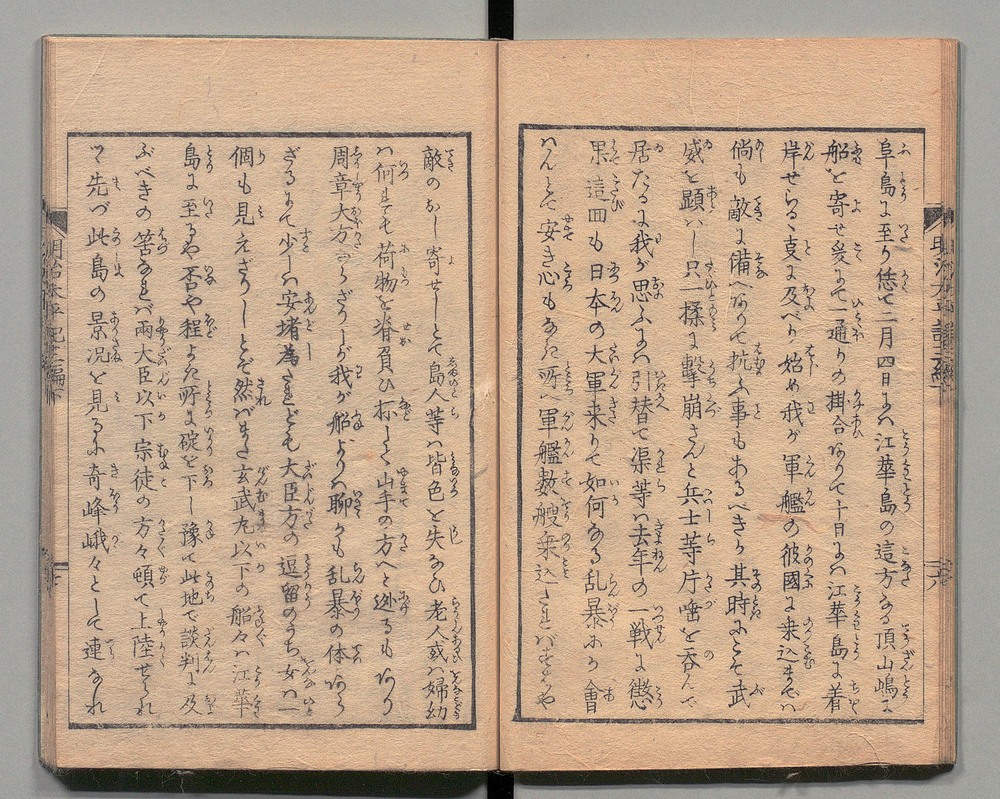 阜島に至り恁て二月四日には江華島の這方なる頂山嶋に
船を寄せ爰にて一通りの掛合ありて十日には江華島に着
岸せらるゝ事に及べり始め我が軍艦の彼國に乗込までハ
倘も敵に備へありて抗ふ事もあるべきか其時にこそ武
威を顕ハし只一揉に撃崩さんと兵士等片唾を呑んで
居たるに我が思ふにハ引替て渠等ハ去年の一戦に懲
果這回も日本の大軍来りて如何なる乱暴にか會
はんとて安き心もなき所へ軍艦数艘乗込たれバすはや
敵のおし寄せしとて島人等ハ皆色を失なひ老人或ハ婦幼
ハ何れも荷物を脊負ひ抔して山手の方へと迯るもあり
周章大方ならざりしが我が船よりハ聊かも乱暴の体あら
ざるにて少しハ安堵為たれども大臣方の逗留のうち女ハ一
個も見えざりしとぞ然バまた玄武丸以下の船々ハ江華
島に至るや否や程よき所に碇を下し豫て此地で談判に及
ぶべきの筈なれバ兩大臣以下宗徒の方々頓て上陸せられ
つゝ先づ此島の景况を見るに奇峰峨々として連なれ
明治太平記十二編下